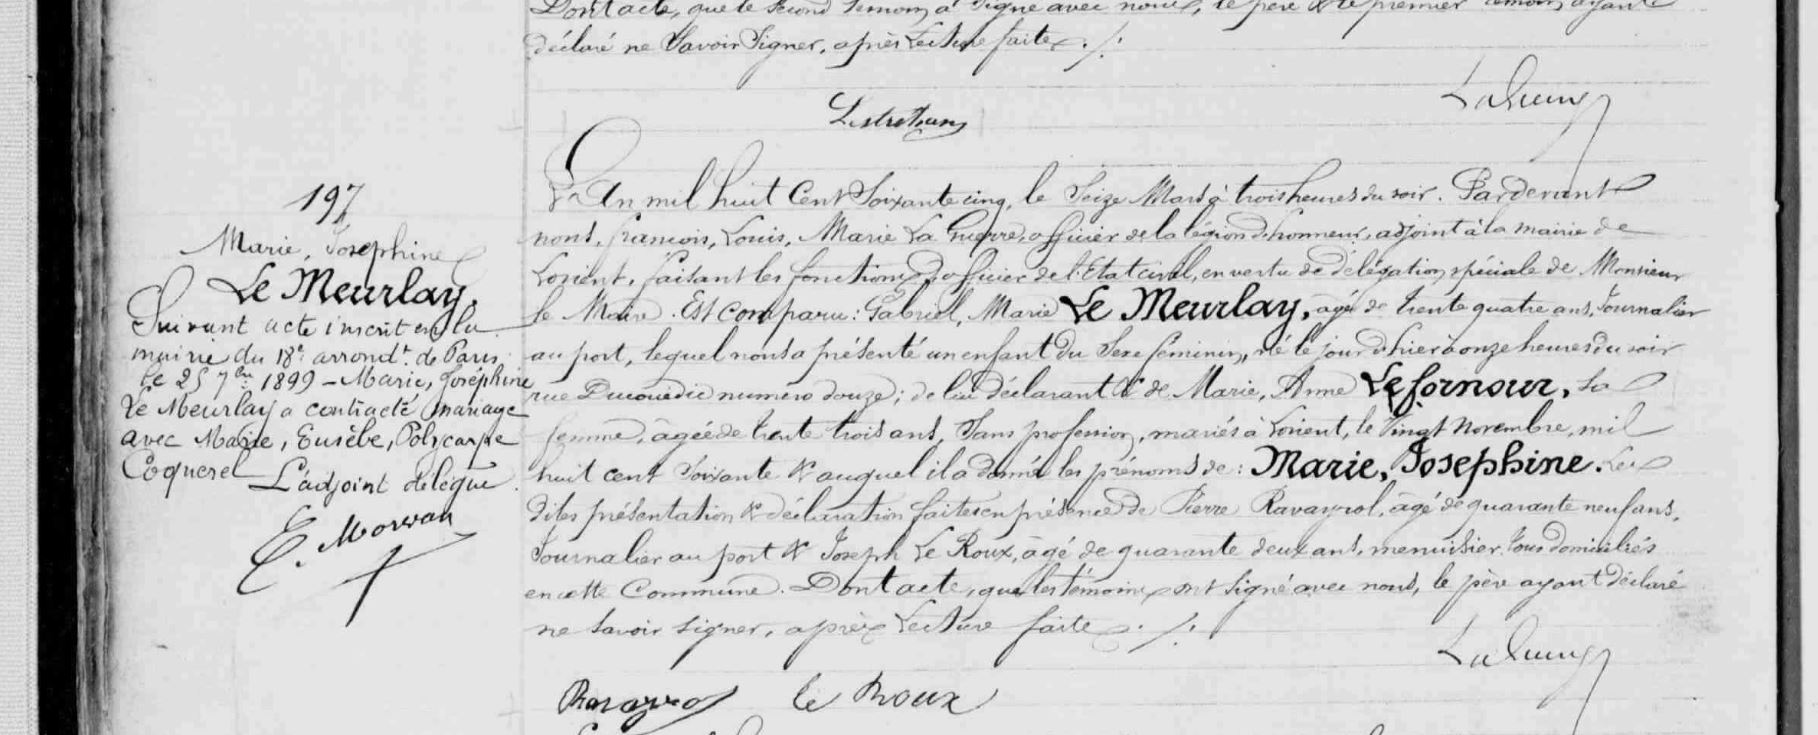 Dont acte, que le second témoin a signé avec nous, le père & le premier témoin ayant
déclaré ne Savoir Signer, après Lecture faite ./.
197
Marie, Josephine
Le Meurlay.
Suivant acte inscrit en la
mairie du 18e arrondt. de Paris,
le 25 7bre 1899 – Marie, Joséphine
Le Meurlay a contracté mariage
avec Marie, Eusèbe, Polycarpe
Coquerel L'adjoint délégué
E. Morvan
L'An mil huit Cent Soixante cinq, le Seize Mars à trois heures du soir. Pardevant
nous, françois, Louis, Marie La Guerre, officier de la légion d'honneur, adjoint à la mairie de
Lorient, faisant les fonctions d'officier de l'Etat civil, en vertu de délégation spéciale de Monsieur
le Maire. Est comparu: Gabriel, Marie Le Meurlay, agé de trente quatre ans, Journalier
au port, lequel nous a présenté un enfant du Sexe féminin, né le jour d'hier à onze heures du soir
rue Ducouëdic numero douze; de lui déclarant & de Marie, Anne Le fornour, Sa
femme, âgée de trente trois ans, Sans profession, mariés à Lorient, le Vingt Novembre, mil
huit cent Soixante & auquel il a donné les prénoms de: Marie, Josephine. Les
dites présentation & déclaration faites en présence de Pierre Ravayrol, âgé de quarante neuf ans,
Journalier au port & Joseph Le Roux, âgé de quarante deux ans, menuisier, tous domiciliés
en cette Commune. Dont acte, que les témoins ont signé avec nous, le père ayant déclaré
ne Savoir signer, après Lecture faite ./.
Ravayrol le Roux